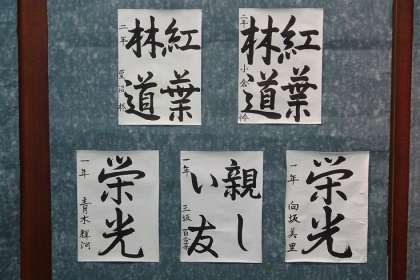 紅葉
林道
二年
小倉怜
紅葉
林道
二年
栄光
一年
向坂美里
親し
い友
一年
三坂
栄光
一年
青木輝河